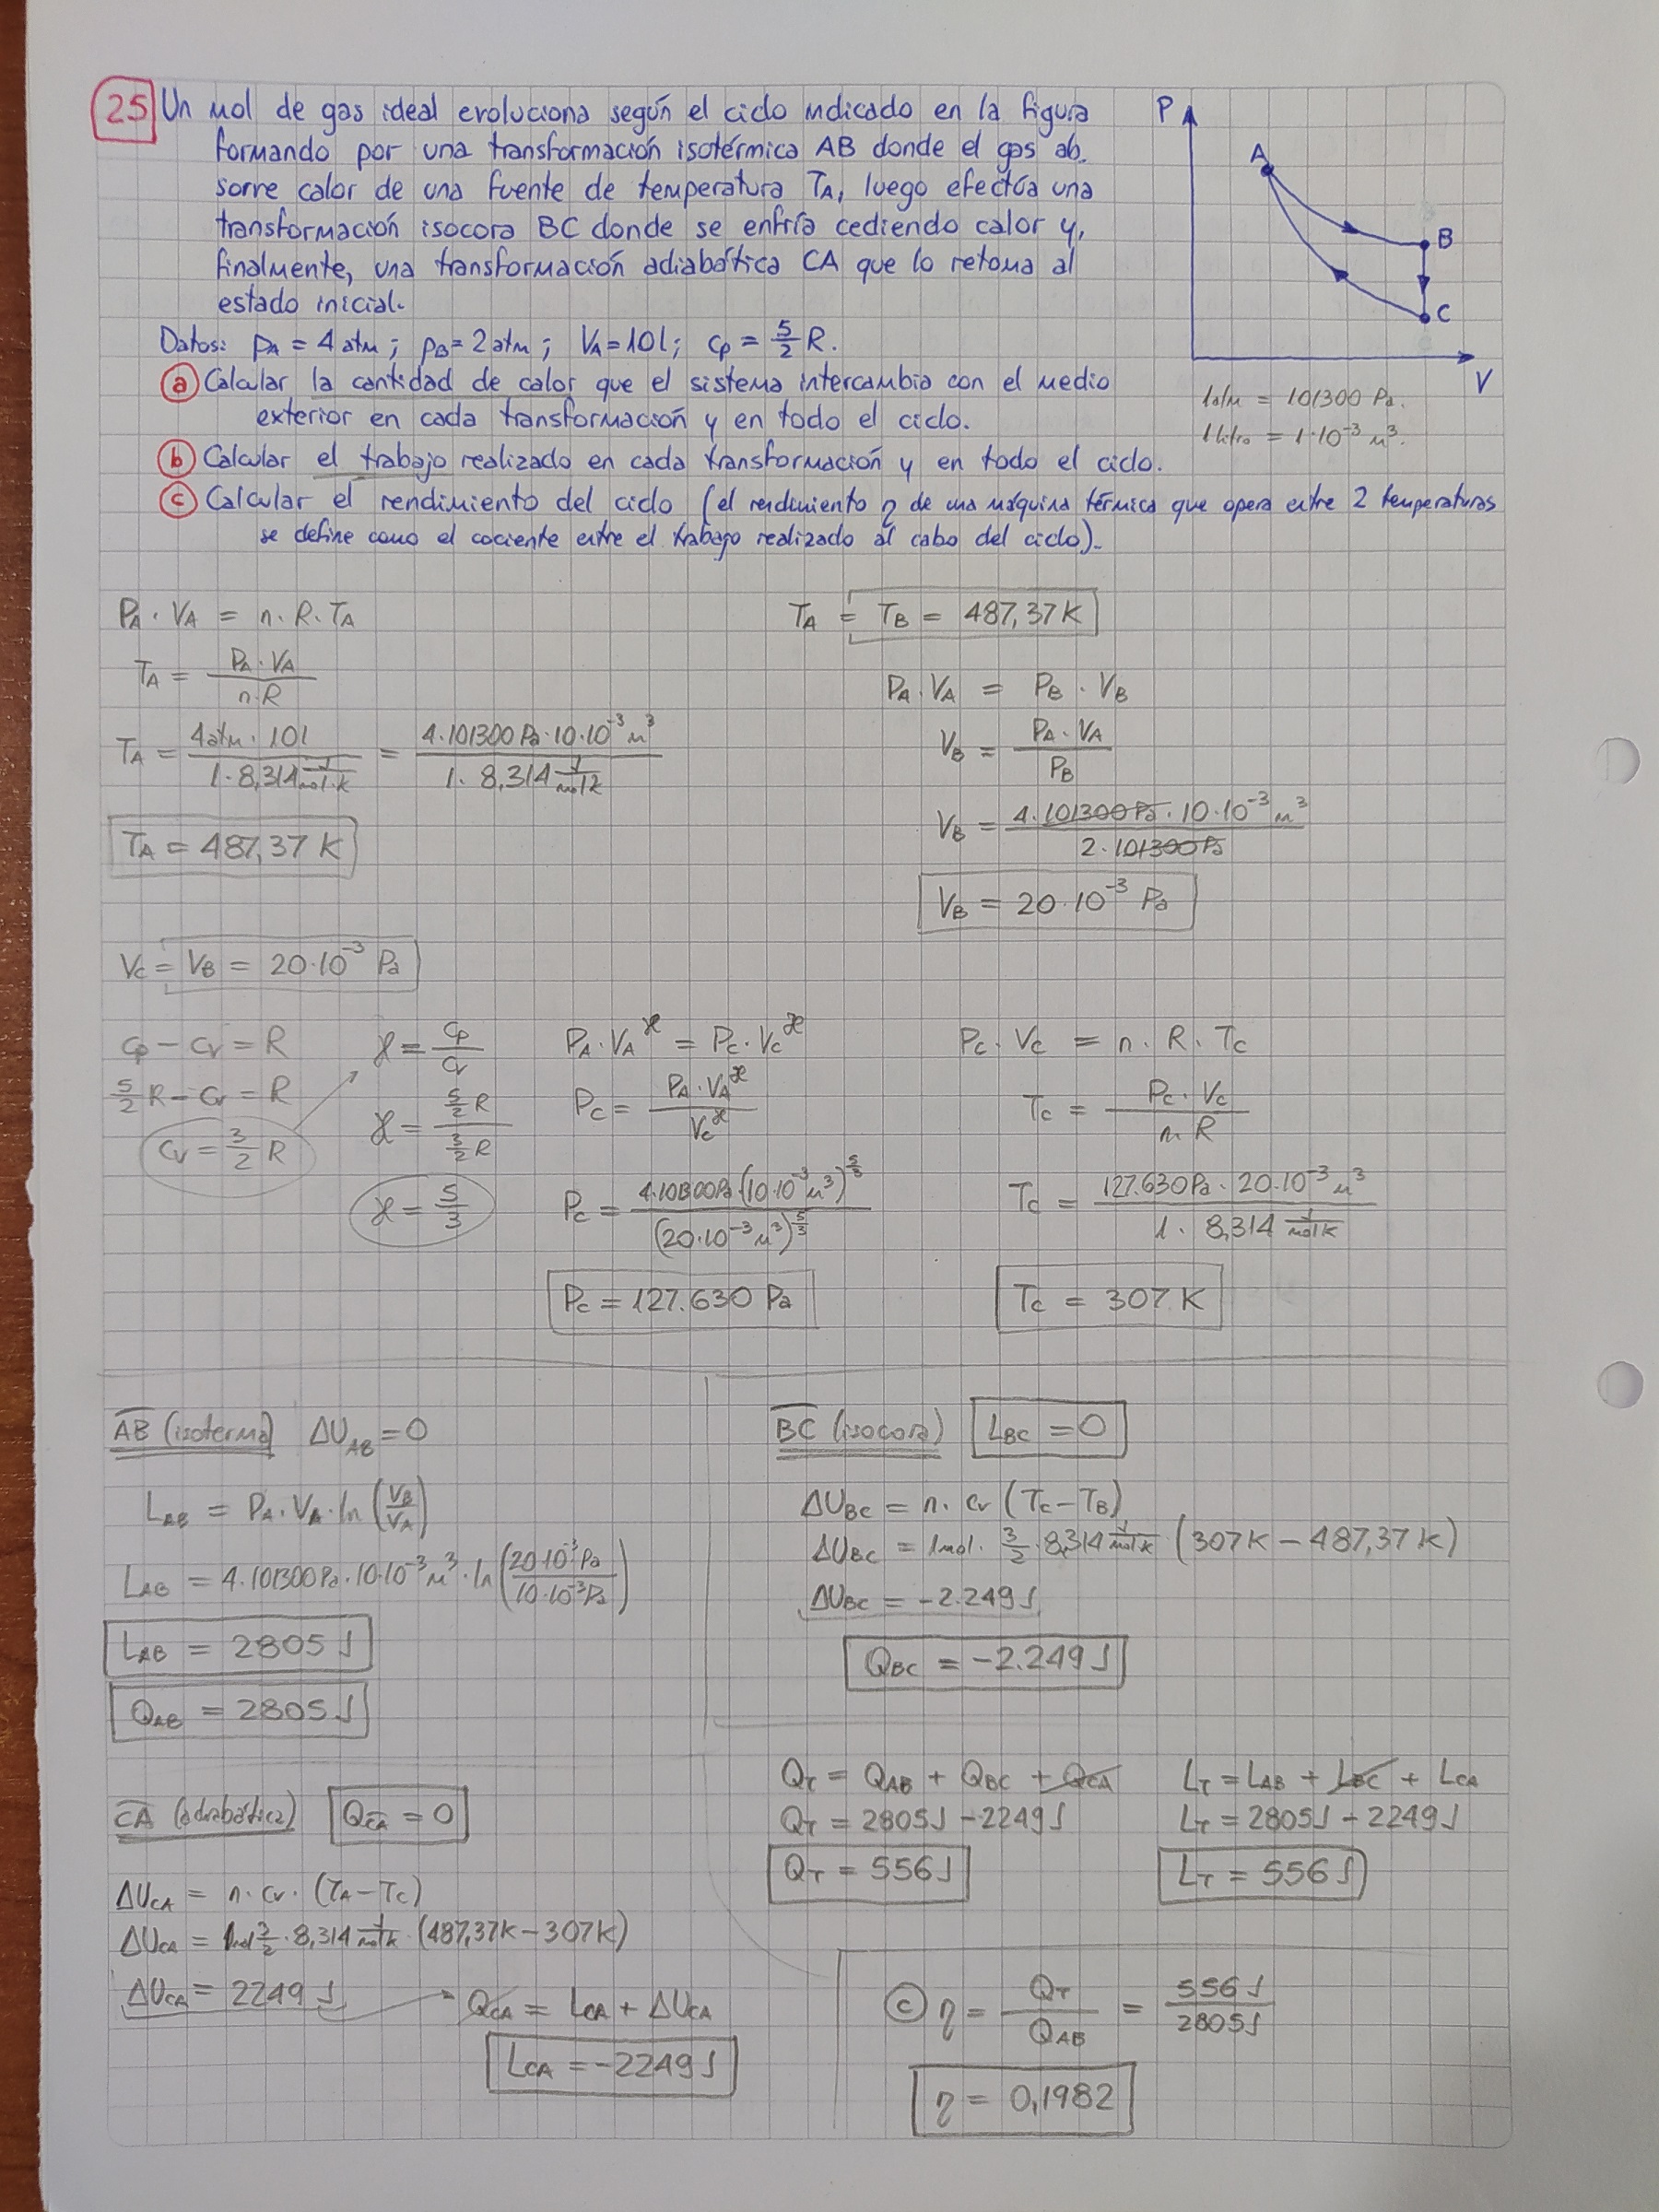 25 Un mol de gas ideal evoluciona según el ciclo indicado en la figura
formando por una transformación isotérmica AB donde el gas ab-
sorre calor de una fuente de temperatura TA, luego efectúa una
transformación isocora BC donde se enfría cediendo calor y,
finalmente, una transformación adiabática CA que lo retoma al
estado inicial.
Datos: pA = 4 atm; pB = 2 atm; VA = 10 l; cp = 5/2 R.
P
A
B
C
V
1 atm = 101300 Pa.
1 litro = 1·10⁻³ m³.
a Calcular la cantidad de calor que el sistema intercambia con el medio
exterior en cada transformación y en todo el ciclo.
b Calcular el trabajo realizado en cada transformación y en todo el ciclo.
c Calcular el rendimiento del ciclo (el rendimiento η de una máquina térmica que opera entre 2 temperaturas
se define como el cociente entre el trabajo realizado al cabo del ciclo).
PA · VA = n · R · TA
TA = PA · VA / n·R
TA = 4 atm · 10 l / 1 · 8,314 J/mol·K = 4·101300 Pa · 10·10⁻³ m³ / 1 · 8,314 J/mol K
TA = 487,37 K
TA = TB = 487,37 K
PA · VA = PB · VB
VB = PA · VA / PB
VB = 4·101300 Pa · 10·10⁻³ m³ / 2·101300 Pa
VB = 20·10⁻³ Pa
VC = VB = 20·10⁻³ Pa
cp − cv = R
5/2 R − cv = R
cv = 3/2 R
γ = cp / cv
γ = 5/2 R / 3/2 R
γ = 5/3
PA · VA^γ = PC · VC^γ
PC = PA · VA^γ / VC^γ
PC = 4·101300 Pa (10·10⁻³ m³)^5/3 / (20·10⁻³ m³)^5/3
PC = 127.630 Pa
PC · VC = n · R · TC
TC = PC · VC / n R
TC = 127.630 Pa · 20·10⁻³ m³ / 1 · 8,314 J/mol K
TC = 307 K
AB (isoterma) ΔUAB = 0
LAB = PA · VA · ln (VB/VA)
LAB = 4·101300 Pa · 10·10⁻³ m³ · ln (20·10⁻³ Pa / 10·10⁻³ Pa)
LAB = 2805 J
QAB = 2805 J
BC (isocora) LBC = 0
ΔUBC = n · cv (TC − TB)
ΔUBC = 1 mol · 3/2 · 8,314 J/mol K (307 K − 487,37 K)
ΔUBC = −2.249 J
QBC = −2.249 J
CA (adiabática) QCA = 0
ΔUCA = n · cv · (TA − TC)
ΔUCA = 1 mol 3/2 · 8,314 J/mol K · (487,37 K − 307 K)
ΔUCA = 2249 J
QCA = LCA + ΔUCA
LCA = −2249 J
QT = QAB + QBC + QCA
QT = 2805 J − 2249 J
QT = 556 J
LT = LAB + LBC + LCA
LT = 2805 J − 2249 J
LT = 556 J
c η = QT / QAB = 556 J / 2805 J
η = 0,1982